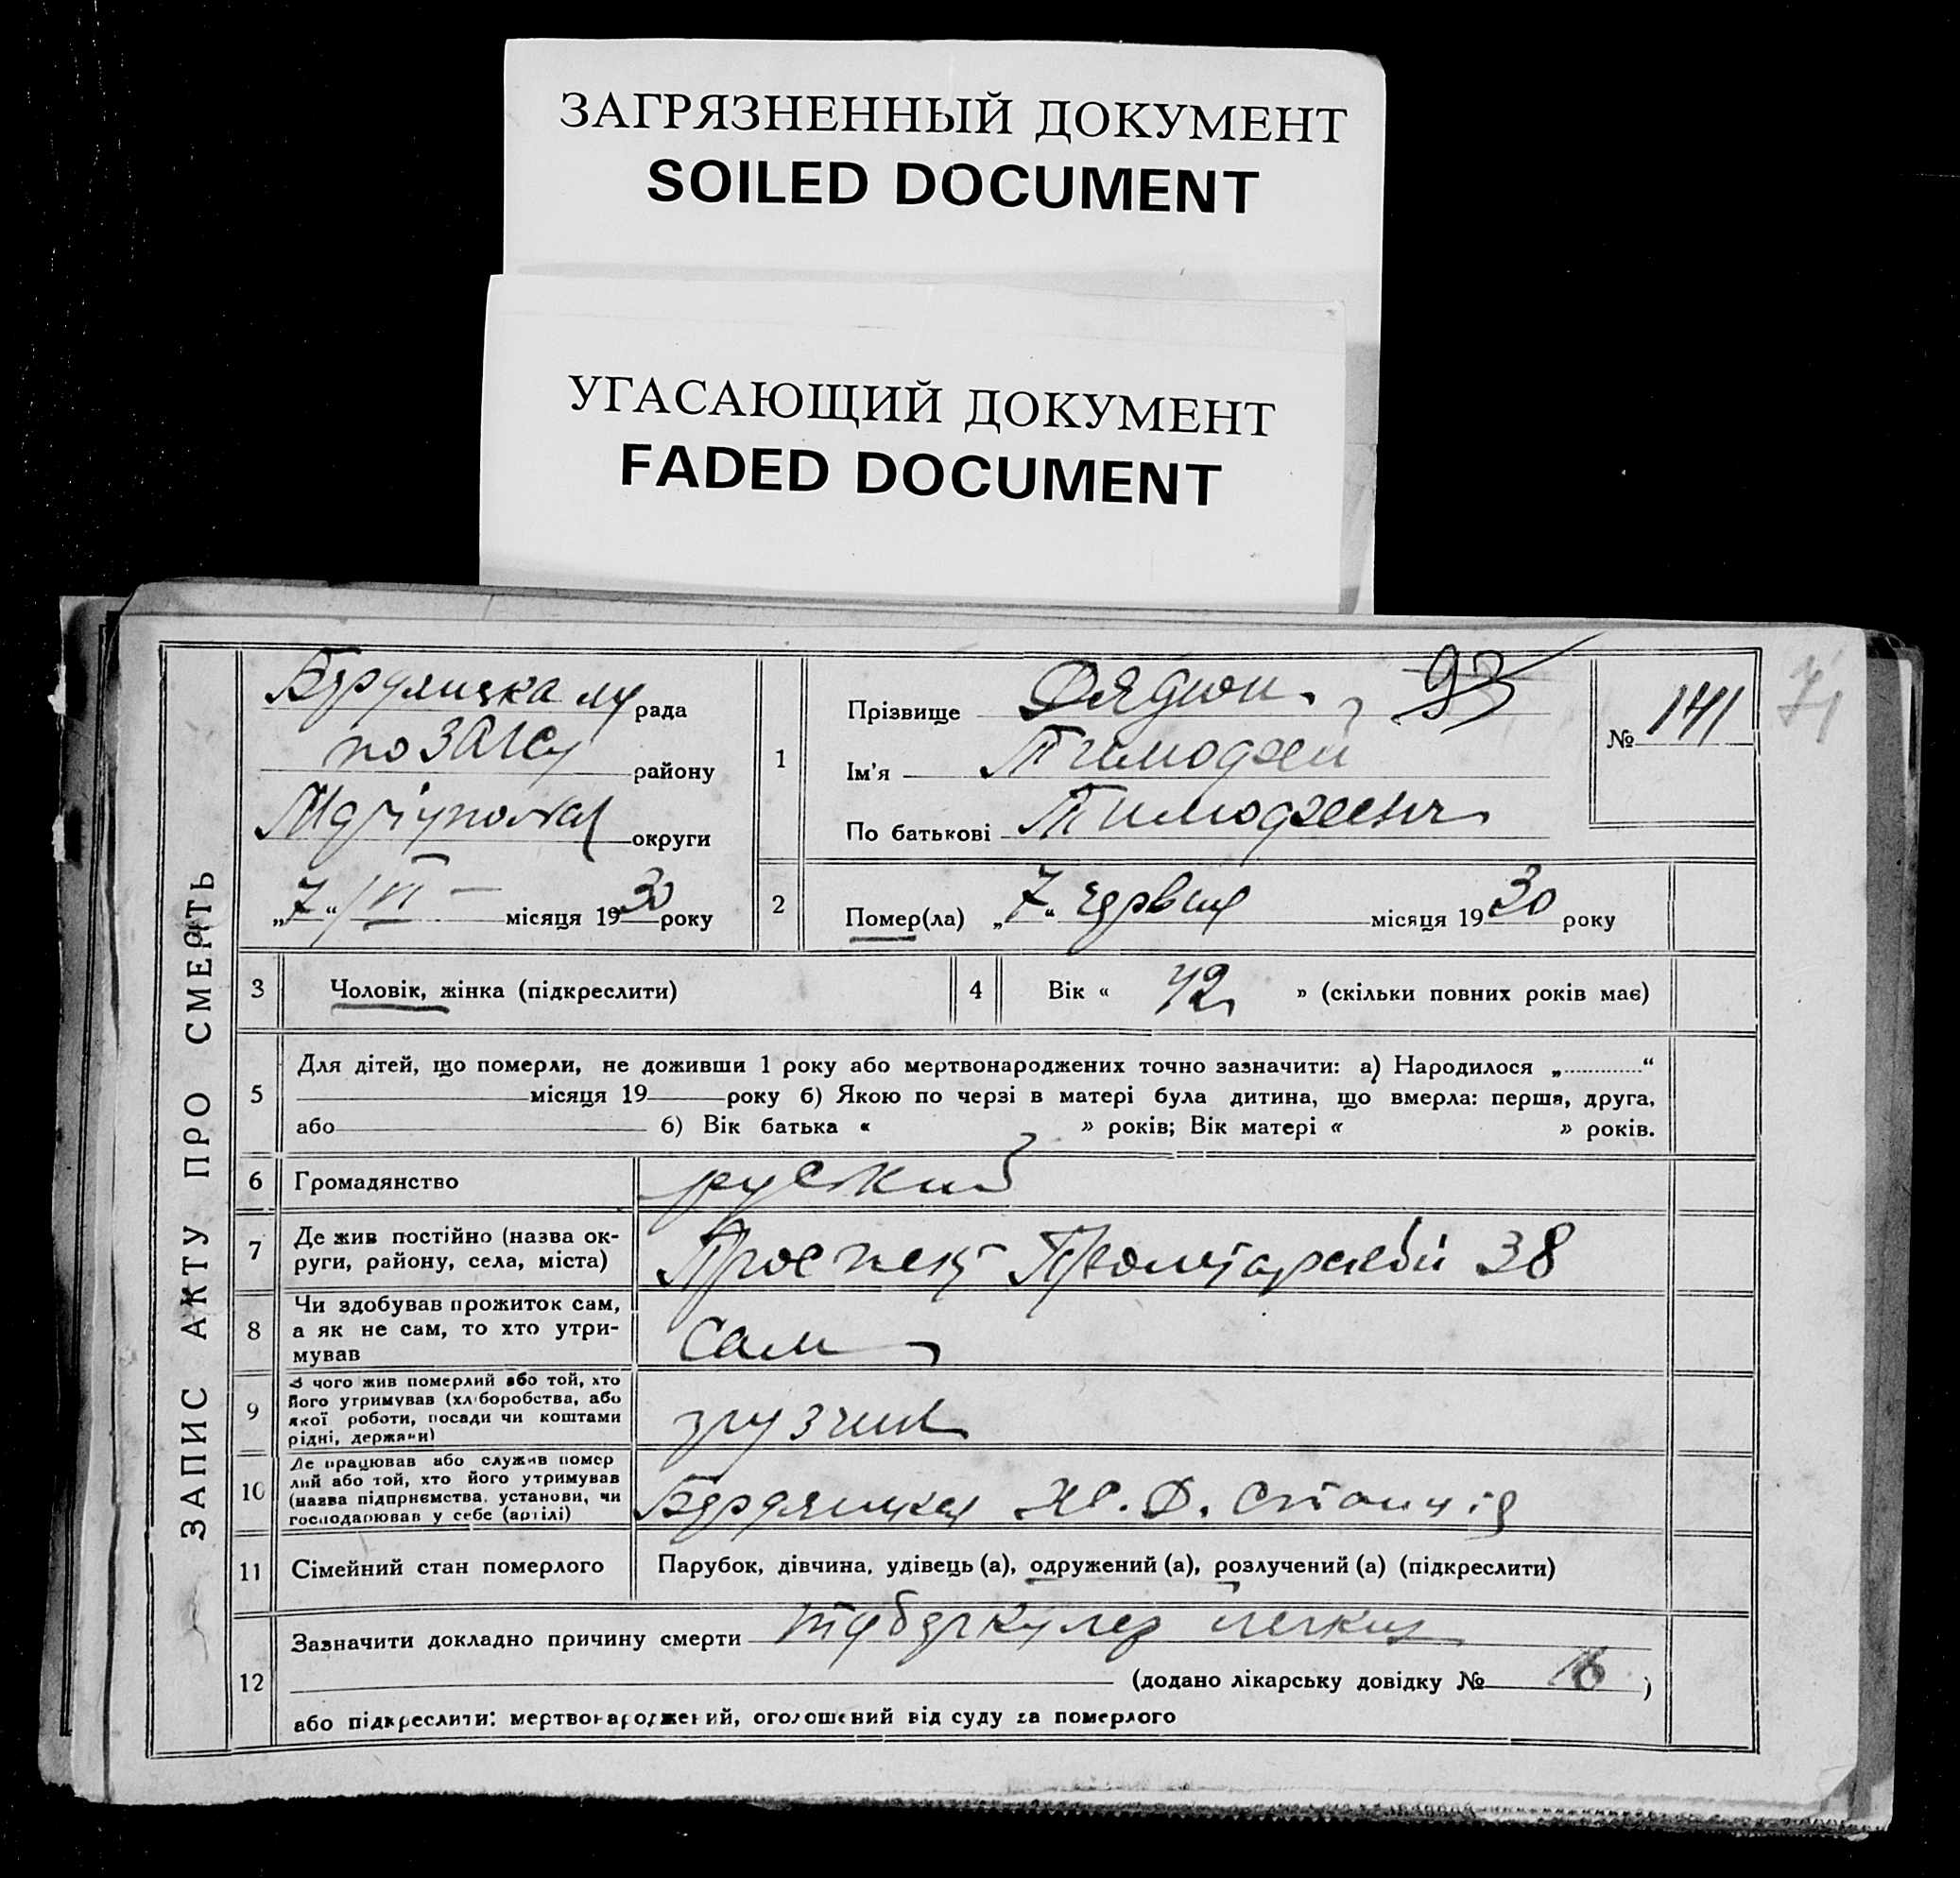 ЗАГРЯЗНЕННЫЙ ДОКУМЕНТ
SOILED DOCUMENT
УГАСАЮЩИЙ ДОКУМЕНТ
FADED DOCUMENT
ЗАПИС АКТУ ПРО СМЕРТЬ
71
Бердянська рада
по ЗАГСу району
округи
„7“ VI — місяця 1930 року
1
Прізвище Дядюн 93
Ім'я Тимофей
По батькові Тимофеевич
№ 141
2
Помер(ла) „7“ червня місяця 1930 року
3 Чоловік, жінка (підкреслити)
4 Вік « 42 » (скільки повних років має)
5 Для дітей, що померли, не доживши 1 року або мертвонароджених точно зазначити: а) Народилося „.............“
місяця 19 року б) Якою по черзі в матері була дитина, що вмерла: перша, друга,
або 6) Вік батька « » років; Вік матері « » років.
6 Громадянство руский
7 Де жив постійно (назва ок-
руги, району, села, міста) Проспект Пролетарский 38
8 Чи здобував прожиток сам,
а як не сам, то хто утри-
мував сам
9 З чого жив померлий або той, хто
його утримував (хліборобства, або
якої роботи, посади чи коштами
рідні, держави) грузчик
10 Де працював або служив помер
лий або той, хто його утримував
(назва підприємства, установи, чи
господарював у себе (артілі) Бердянська Ж. Д. станция
11 Сімейний стан померлого Парубок, дівчина, удівець (а), одружений (а), розлучений (а) (підкреслити)
12 Зазначити докладно причину смерти туберкулез легких
(додано лікарську довідку № 16 )
або підкреслити: мертвонароджений, оголошений від суду за померлого